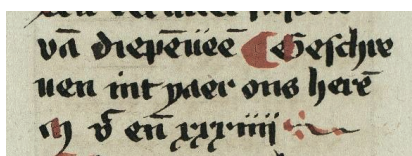 vā diepēueē Geschre
uen int yaer ons herē
m vͨ eñ xxxiiij